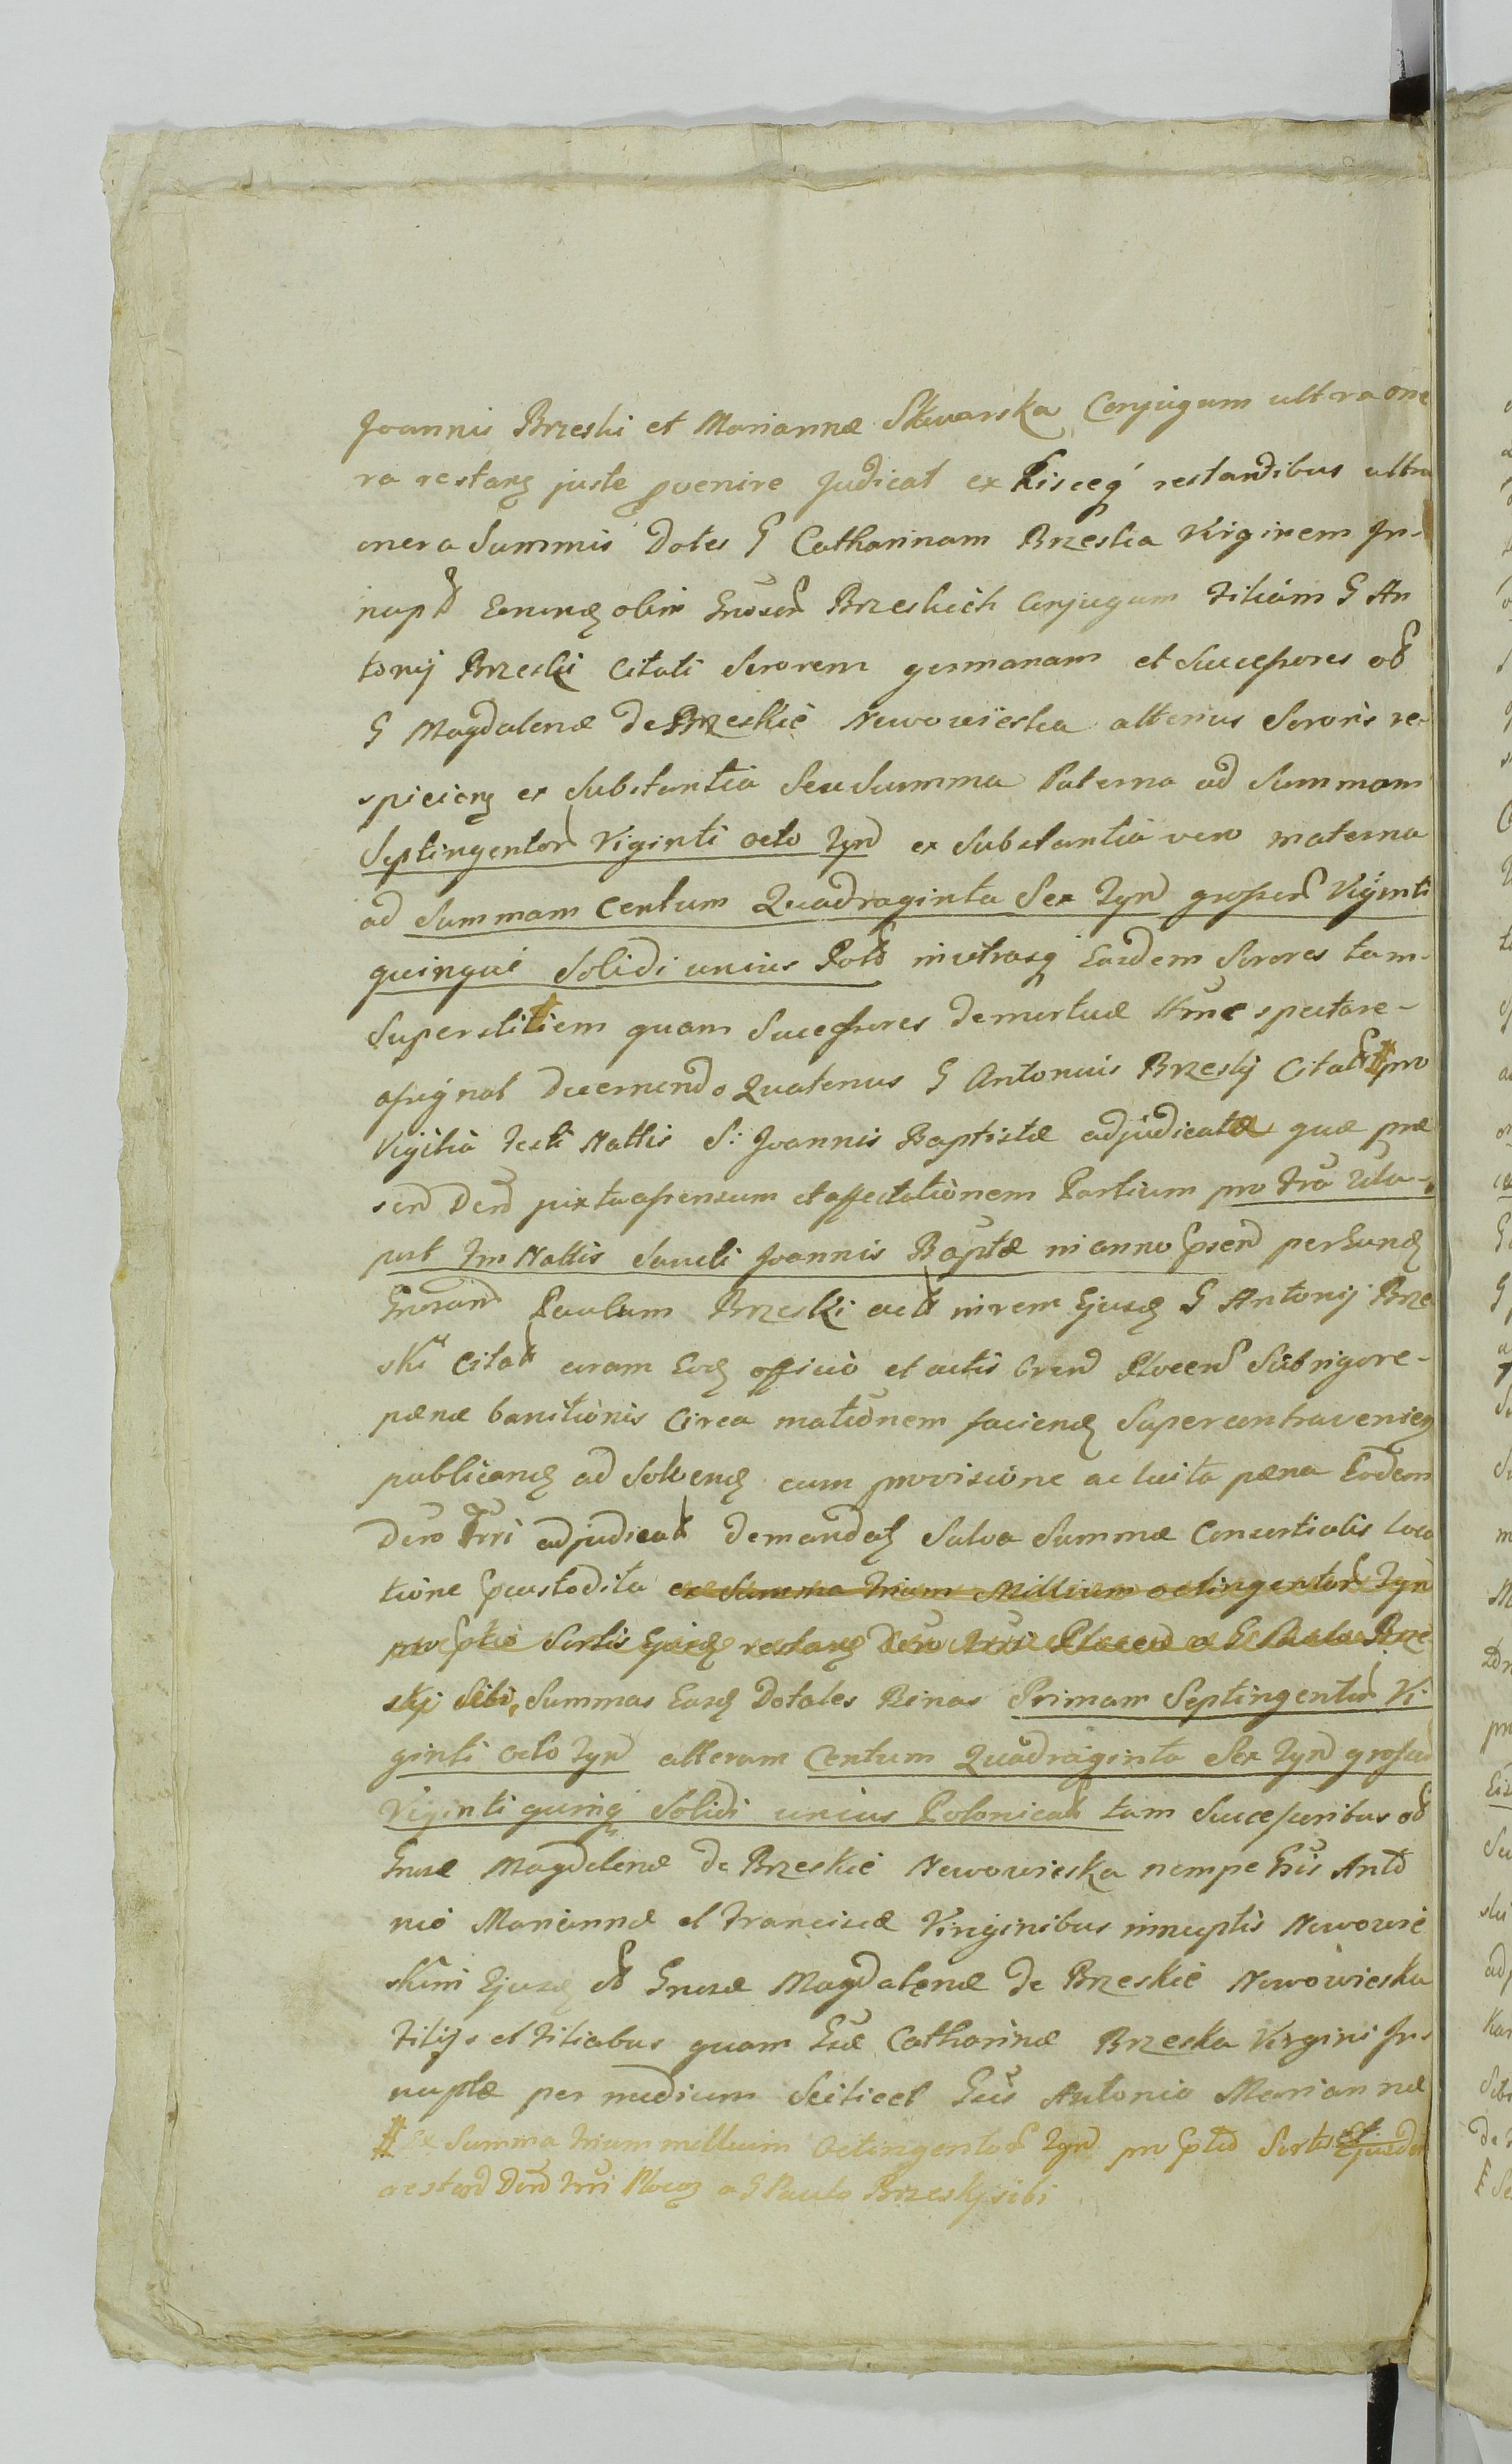 Joannis Brzeski et Mariannæ Skwarska Conjugum ultra one
ra restanȝ juste pvenire Judicat ex hisceq́ restantibus ultra
onera Summis Dotes G Catharinam Brzeska Virginem In-
nupt Earundȝ olim Gnosor Brzeskich Conjugum Filiam G An
tonij Brzeski Citati Sororem germanam et Successores oɫ
G Magdalenæ de Brzeskie Nowowieska alterius Sororis re-
spicienȝ ex Substantia Seu Summa Paterna ad Summam
Septingentor Viginti octo Złyn ex Substantia vero materna
ad Summam Centum Quadraginta Sex Złyn grossor Viginti
quinque Solidi unius Pol in utrasq́ Easdem Sorores tam-
Superstitem quam Successores demortuæ spectare-
assignat Decernendo Quatenus G Antonius Brzeskj Citat # pro
Vigilia Festi Nattis S: Joannis Baptistæ adjudicatæ quæ præ
sen Den juxta assensum et affectationem Partium pro Fra
post Fm Nattis Sancti Joannis Baptæ in anno psen per Eundȝ
Gnosum Paulum Brzeski act in rem Ejusdȝ G Antonij Brze
ski Citat coram Eodȝ officio et actis Cren Plocen Sub rigore-
pænæ banitionis Circa mationem faciendȝ Super contravenienȝ
publicandȝ ad Solvendȝ cum provisione ac luita pæna Eodem
Dero Frri adjudicat demandatȝ Salva Summæ Consortialis loca
tione pcustodita ex Summa Trium Millium octingentor Złyn
pro ptio Sortis Ejusdȝ restanȝ Dero Frri Plocen a G Paulo Brze
skj Sibi, Summas Easdȝ Dotales Binas Primam Septingentor Vi-
ginti octo Złyn alteram Centum Quadraginta Sex Złyn grossor
Viginti quinq́ Solidi unius Polonical tam Successoribus oɫ
Gnosæ Magdalenæ de Brzeskie Nowowieska nempe Gsis Anto
nio Mariannæ et Franciscæ Virginibus innuptis Nowowie
skim Ejusdȝ oɫ Gnosæ Magdalenæ de Brzeskie Nowowieska
Filijs et Filiabus quam Gsæ Catharinæ Brzeska Virgini In-
nuptæ per medium Scilicet Gsis Antonio Mariannæ et
# Ex Summa Trium millium Octingentor Złyn pro ptio Sortis Ejusdem
restan Den Frri Plocenȝ a G Paulo Brzeskj sibi